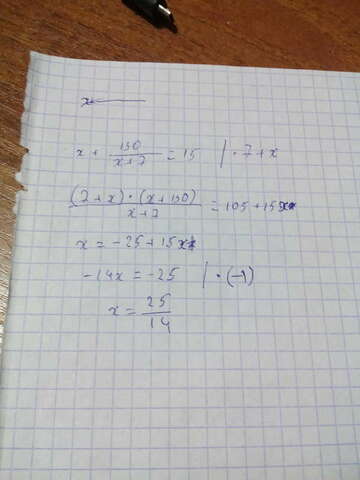 x + 130/(x+7) = 15 | · 7+x
(7+x)·(x+130)/(x+7) = 105+15x
x = -25+15x
-14x = -25 | · (-1)
x = 25/14